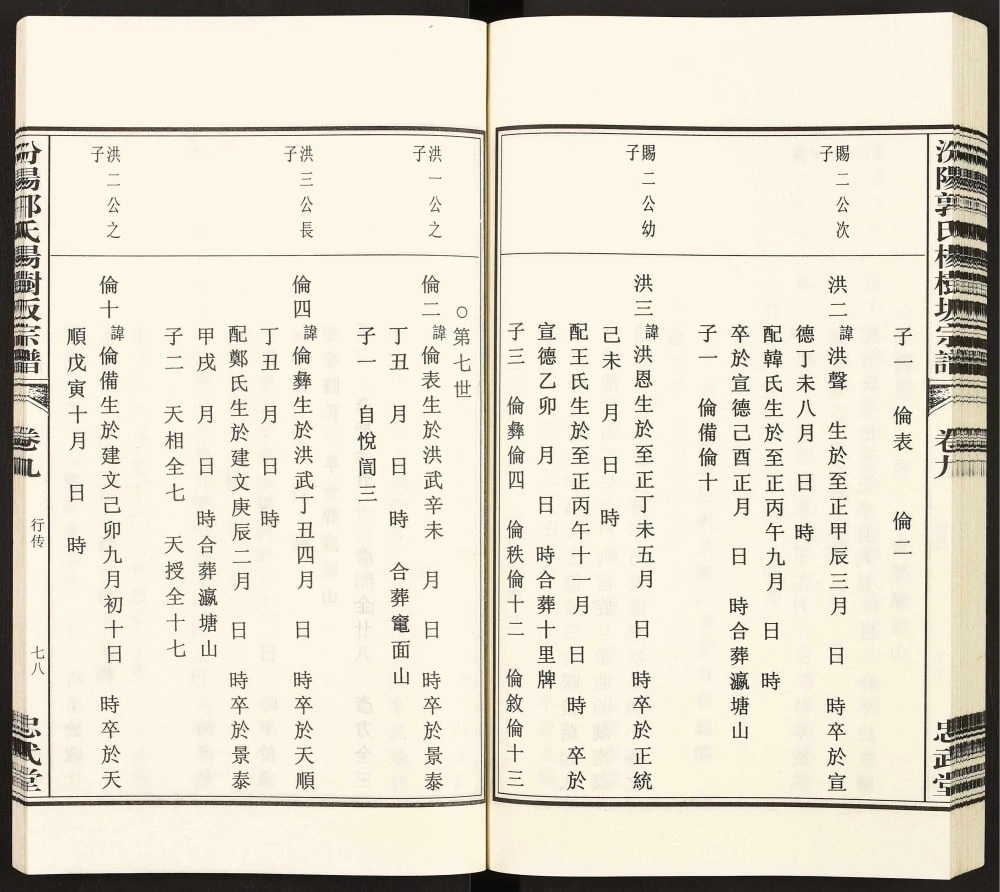 汾陽郭氏楊樹坂宗譜 卷九 忠武堂
子一 倫表 倫二
賜二公次子
洪二 諱洪聲 生於至正甲辰三月 日 時卒於宣
德丁未八月 日 時
配韓氏生於至正丙午九月 日 時
卒於宣德己酉正月 日 時合葬瀛塘山
子一 倫備倫十
賜二公幼子
洪三 諱洪恩生於至正丁未五月 日 時卒於正統
己未 月 日 時
配王氏生於至正丙午十一月 日 時 卒於
宣德乙卯 月 日 時合葬十里牌
子三 倫彝倫四 倫秩倫十二 倫敘倫十三
○第七世
洪一公之子
倫二 諱倫表生於洪武辛未 月 日 時卒於景泰
丁丑 月 日 時 合葬竃面山
子一 自悅誾三
洪三公長子
倫四 諱倫彝生於洪武丁丑四月 日 時卒於天順
丁丑 月 日 時
配鄭氏生於建文庚辰二月 日 時卒於景泰
甲戌 月 日 時合葬瀛塘山
子二 天相全七 天授全十七
洪二公之子
倫十 諱倫備生於建文己卯九月初十日 時卒於天
順戊寅十月 日 時
汾陽郭氏楊樹坂宗譜 卷九 行传 七八 忠武堂